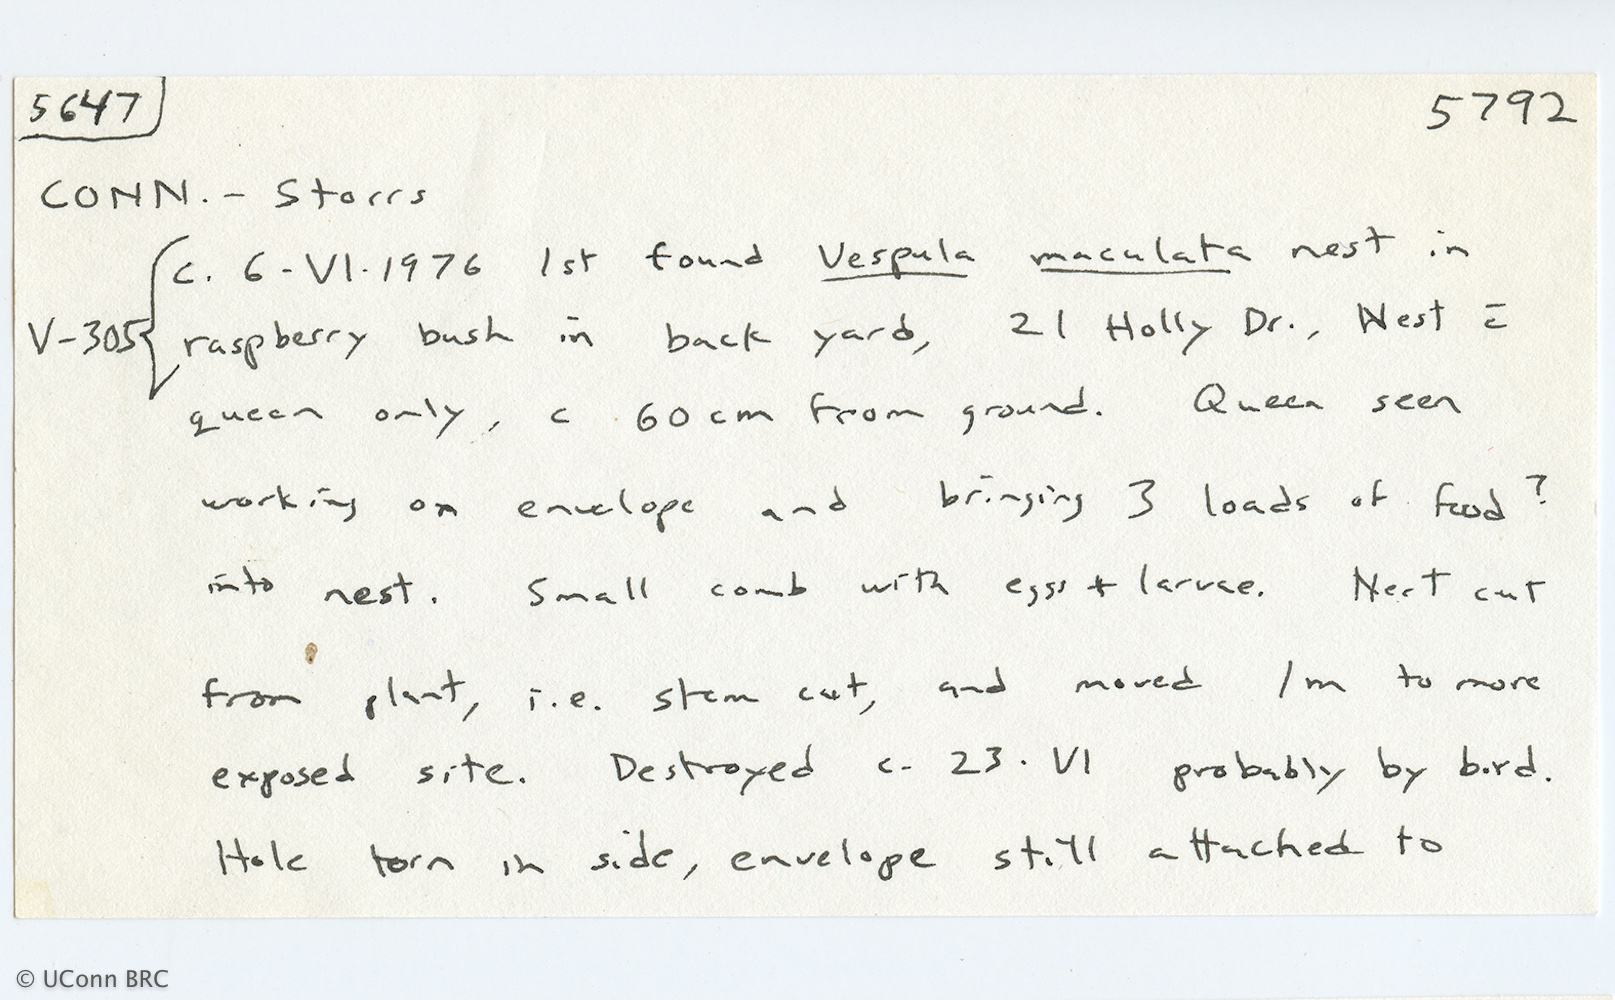 5647
5792
CONN. - Storrs
c. 6-VI.1976 1st found Vespula maculata nest in
V-305 raspberry bush in back yard, 21 Holly Dr., Nest c̄
queen only, c 60 cm from ground. Queen seen
working on envelope and bringing 3 loads of food?
into nest. Small comb with eggs + larvae. Nest cut
from plant, i.e. stem cut, and moved 1m to more
exposed site. Destroyed c. 23.VI probably by bird.
Hole torn in side, envelope still attached to
© UConn BRC